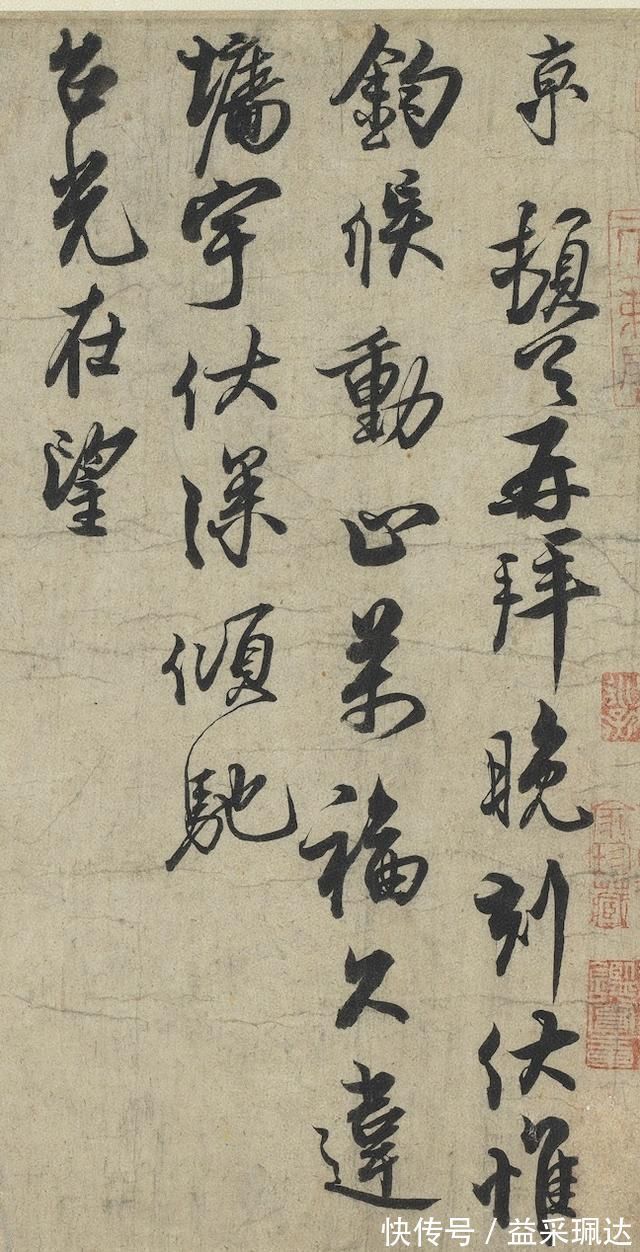 京 頓首再拜晚刻伏惟
鈞候動止萬福久違
墻宇伏深傾馳
台光在望
快传号 / 益采珮达